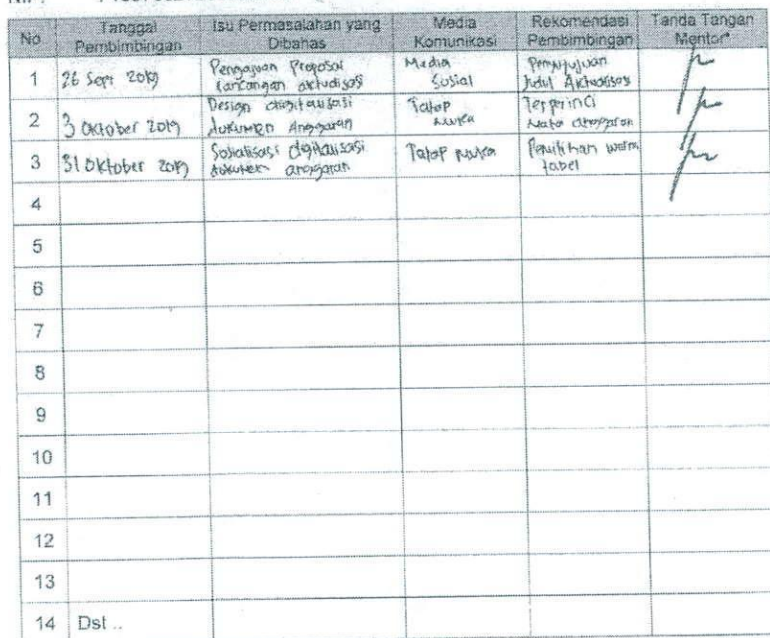 No Tanggal Pembimbingan Isu Permasalahan yang Dibahas Media Komunikasi Rekomendasi Pembimbingan Tanda Tangan Mentor*
1 26 Sept 2019 Pengajuan Proposal rancangan aktualisasi Media Sosial Penyujujuan Judul Aktualisasi
2 3 Oktober 2019 Design digitalisasi dokumen Anggaran Tatap Muka Terperinci Mata anggaran
3 31 Oktober 2019 Sosialisasi digitalisasi dokumen anggaran Tatap Muka Pemilihan warna tabel
4
5
6
7
8
9
10
11
12
13
14 Dst ..